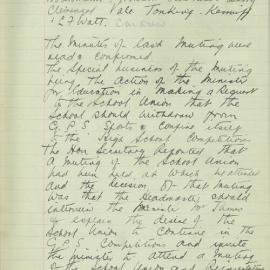 Vale
& L.J. Watt.
The Minutes of last Meeting were
read & confirmed
The Special business of the Meeting
being The Action of the Minister
for Education in Making a Request
to the School Union that the
School should withdraw from
G.P.S. Sports & Confine itself
to the High School Competitions
The Hon Secretary Reported that
a Meeting of the School Union
had been held, at which he attended
and the decision of that Meeting
was that the Headmaster should
interview the Minister Mr James
& Explain the desire of the
School Union to Continue in the
G.P.S. Competitions and invite
the Minister to attend a Meeting
of the School Union and